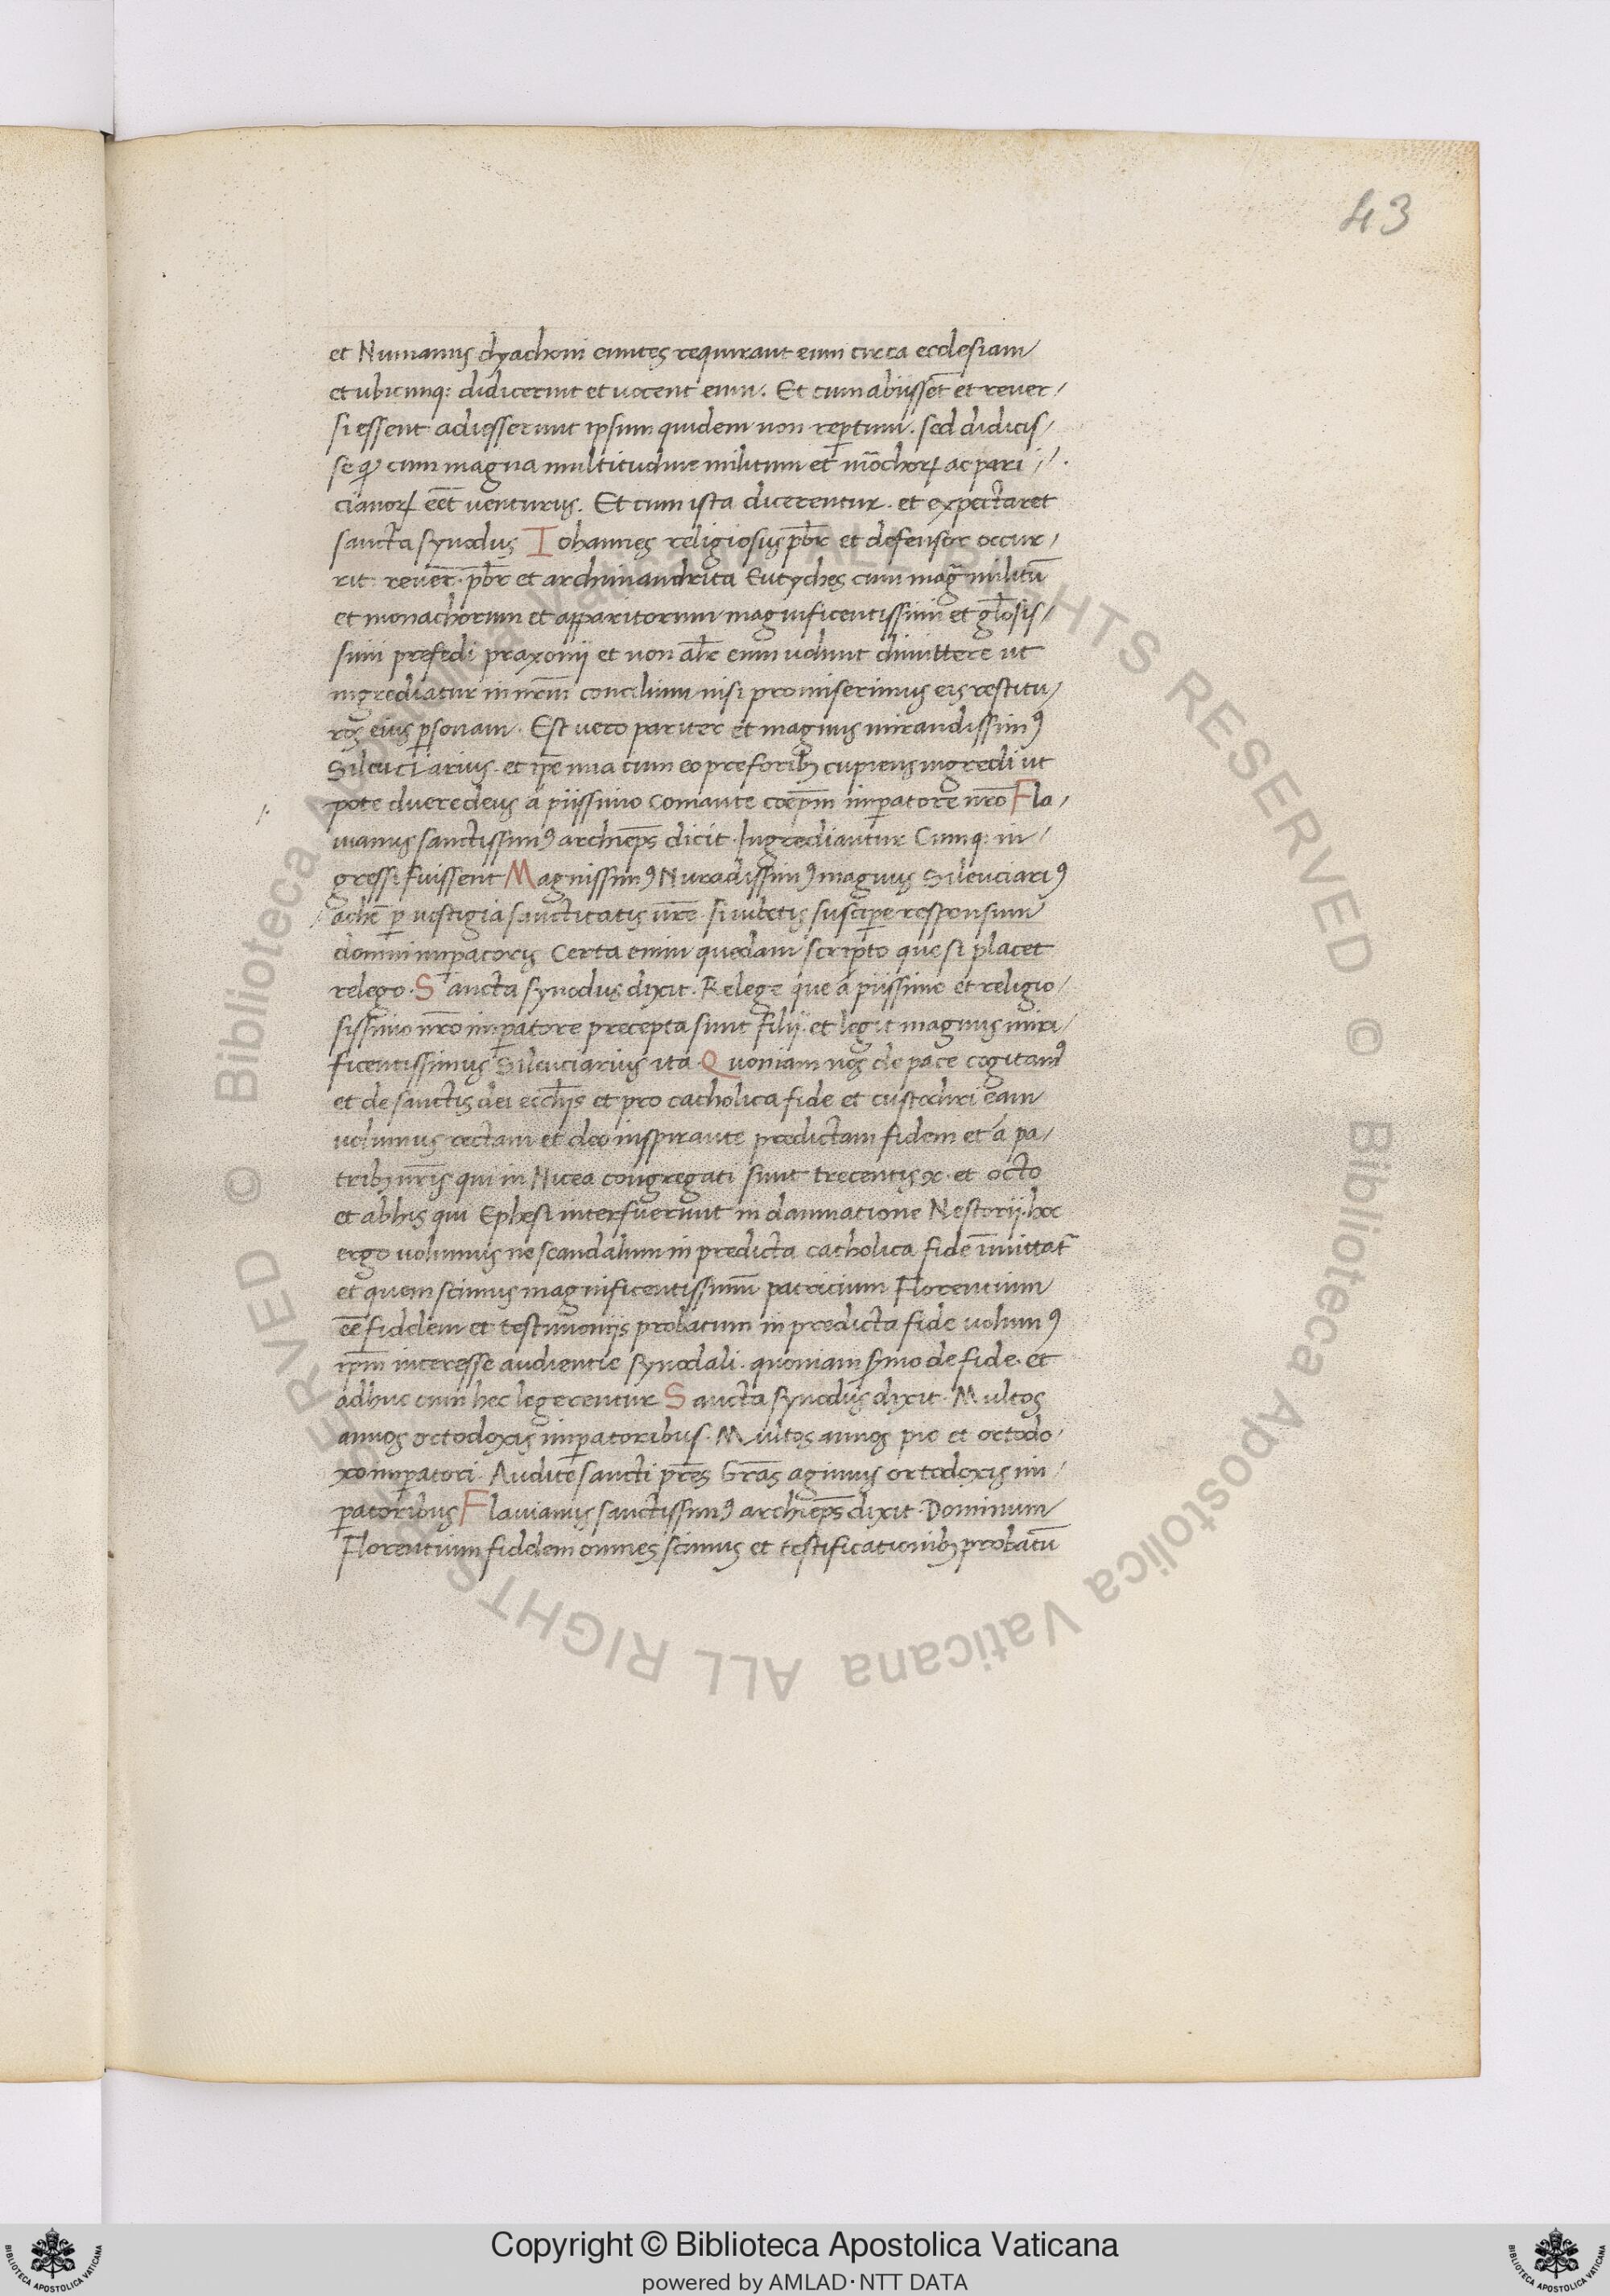 43
et Numanus dyachoni euntes requirant eum circa ecclesiam
et ubicumq: didicerint et vocent eum. Et cum abiissēt et rever/
si essent adiesserunt ipsum quidem non reꝑtum. sed didicis/
se qꝫ cum magna multitudine militum et mōchoꝝ ac pari/
cianoꝝ eēt venturus. Et cum ista dicerentur. et expectaret
sancta synodus Iohannes religiosus pb̄r et defensor occur/
rit: rever̄. pb̄r et archimandrita Eutyches cum mag̃ militū
et monachorum et apparitorum magnificentissimi et gl̄osis/
simi prefecti praxonij et non al̄r eum volunt dimittere ut
ingrediatur in nr̄m concilium nisi promiserimus eis restitu/
ros eius ꝑsonam. Est vero pariter et magnus mirandissimꝰ
Silenciarius. et ip̄e una cum eo pre foribꝫ cupiens ingredi ut
pote directus a piissimo
imꝑatore nr̄o Fla/
vianus sanctissimꝰ archiep̄s dicit. Ingrediantur Cumq: in/
gressi fuissent Magnissimꝰ Nuradissimꝰ magnus Silenciariꝰ
ꝑ vestigia sanctitatis vr̄e. si iubetis susciꝑe responsum
domini imꝑatoris Certa enim quedam scripto que si placet
relego. Sancta synodus dixit. Relege que a piissimo et religio/
sissimo nr̄o imꝑatore precepta sunt filij. et legit magnus miri/
ficentissimus Silenciarius ita. Quoniam nos de pace cogitamꝰ
et de sanctis dei eccl̄ijs et pro catholica fide et custodiri eam
volumus rectam et deo inspirante predictam fidem et a pa/
tribꝫ nr̄is qui in Nicea congregati sunt trecentis x. et octo
et ab his qui Ephesi interfuerunt in damnatione Nestorij. hoc
ergo volumus ne scandalum in predicta catholica fide īmittat᷑
et quem scimus magnificentissimū patricium Florentium
eē fidelem et testimonijs probatum in predicta fide volumꝰ
ip̄m interesse audientie synodali. quoniam s̄mo de fide. et
adhuc cum hec legerentur Sancta synodus dixit. Multos
annos ortodoxis imꝑatoribus. Multos annos pio et ortodo/
xo imꝑatori. Audite sancti pr̄es Gr̄as agimus ortodoxis im/
ꝑatoribus Flavianus sanctissimꝰ archiep̄s dixit. Dominum
Florentium fidelem omnes scimus et testificationibꝫ probatū
Copyright © Biblioteca Apostolica Vaticana
powered by AMLAD·NTT DATA